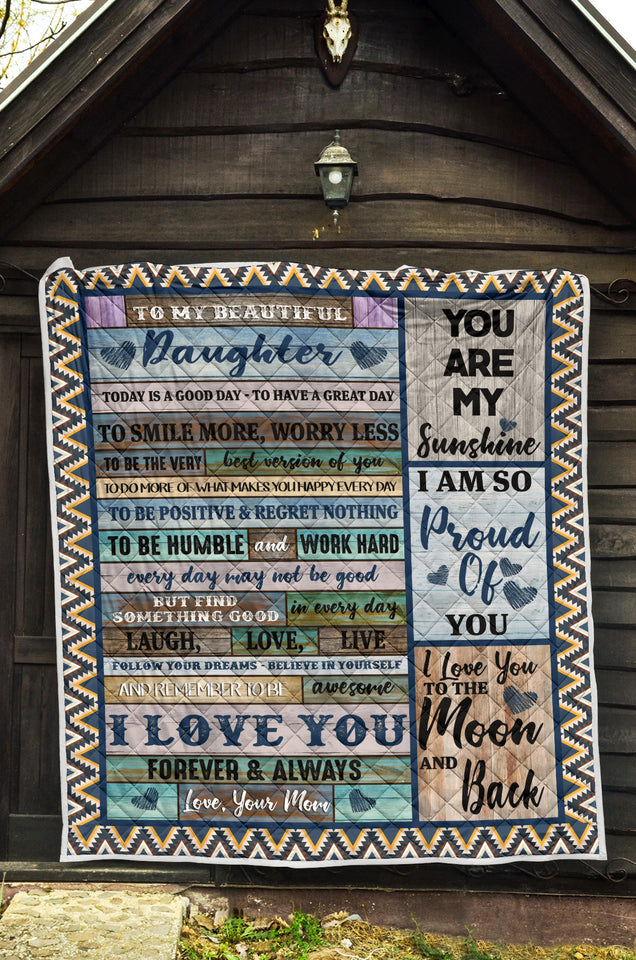 TO MY BEAUTIFUL
Daughter
TODAY IS A GOOD DAY - TO HAVE A GREAT DAY
TO SMILE MORE, WORRY LESS
TO BE THE VERY best version of you
TO DO MORE OF WHAT MAKES YOU HAPPY EVERY DAY
TO BE POSITIVE & REGRET NOTHING
TO BE HUMBLE and WORK HARD
every day may not be good
BUT FIND
SOMETHING GOOD in every day
LAUGH, LOVE, LIVE
FOLLOW YOUR DREAMS - BELIEVE IN YOURSELF
AND REMEMBER TO BE awesome
I LOVE YOU
FOREVER & ALWAYS
Love, Your Mom
YOU
ARE
MY
Sunshine
I AM SO
Proud
Of
YOU
I Love You
TO THE
Moon
AND
Back